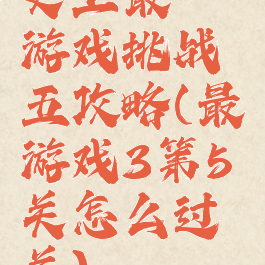 史上最
游戏挑战
五攻略(最
游戏3第5
关怎么过
关)